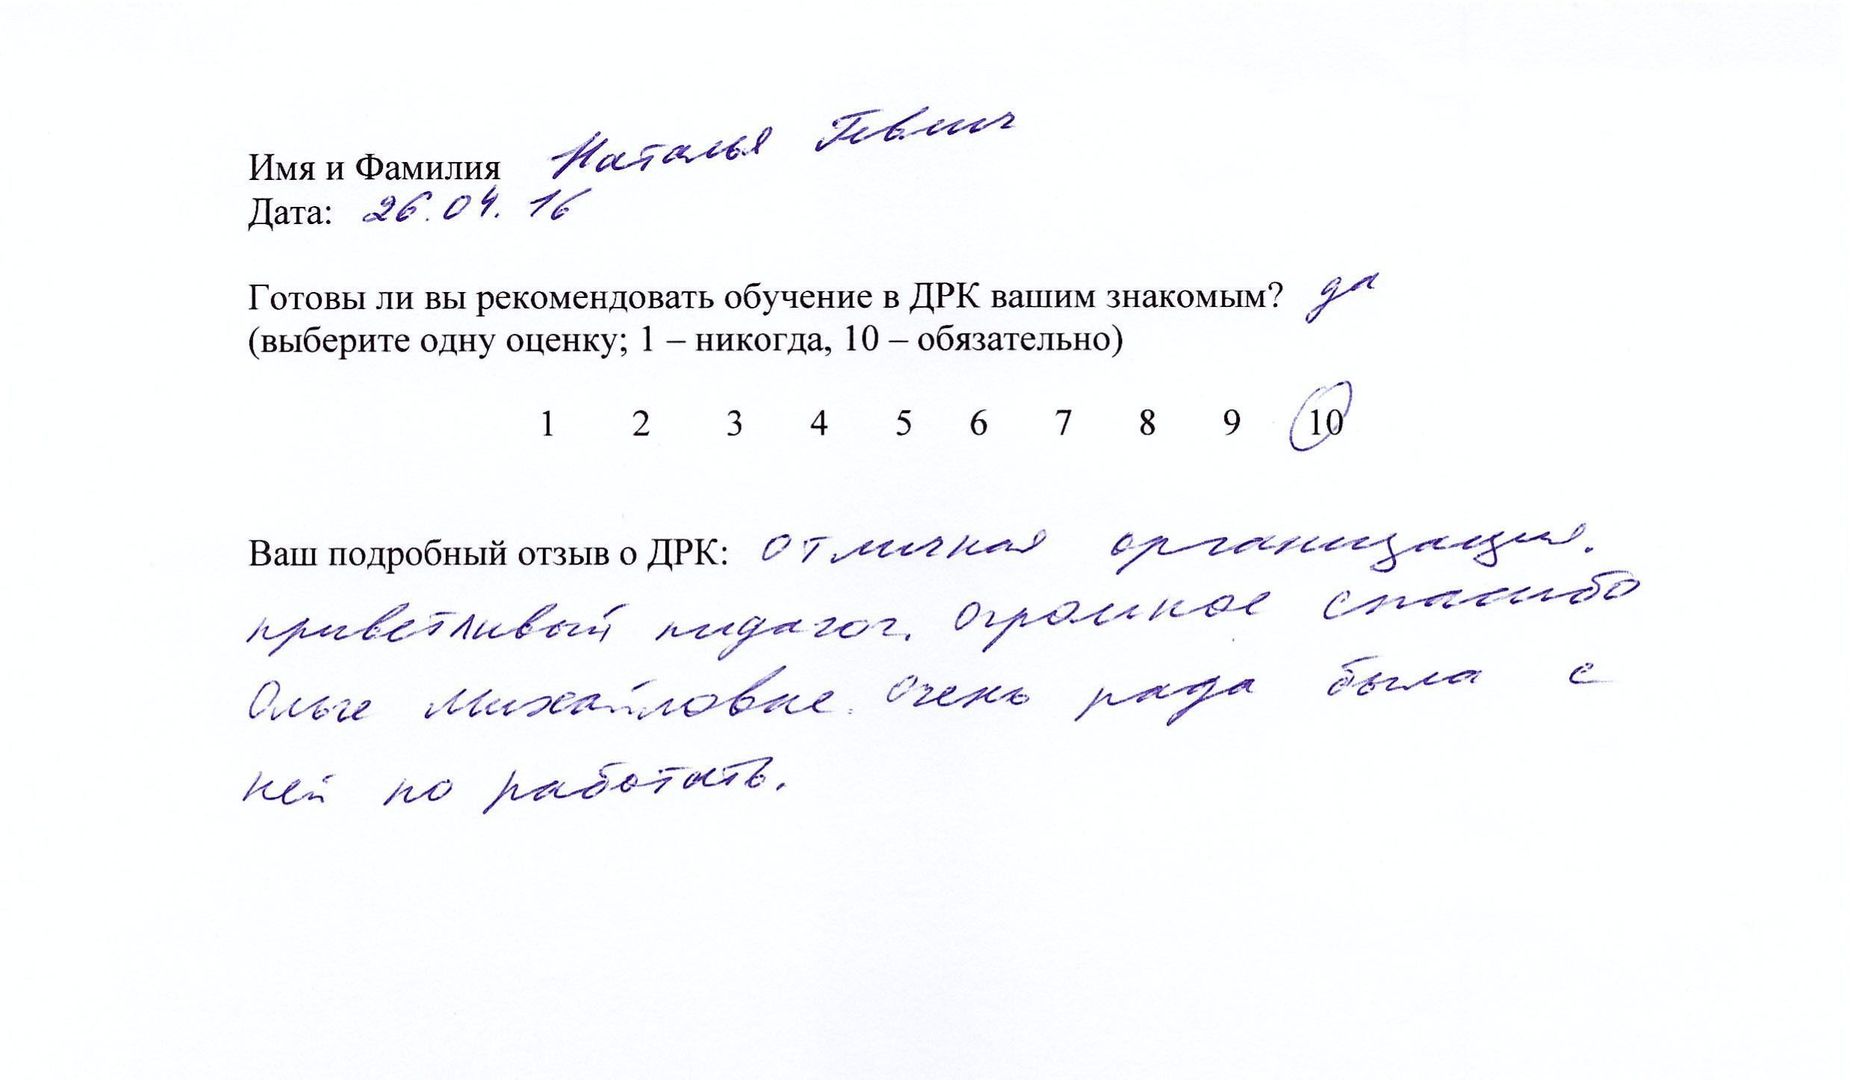 Имя и Фамилия Наталья
Дата: 26.04.16
Готовы ли вы рекомендовать обучение в ДРК вашим знакомым? да
(выберите одну оценку; 1 – никогда, 10 – обязательно)
1 2 3 4 5 6 7 8 9 10
Ваш подробный отзыв о ДРК: отличная организация.
приветливый пидагог. Огромное спасибо
Ольге Михайловне. Очень рада была с
ней по работать.